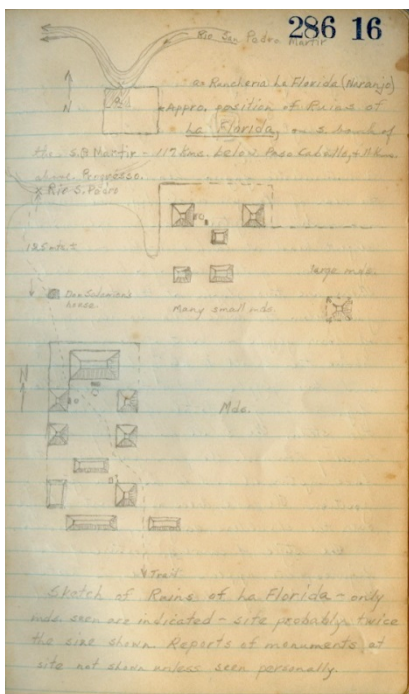 286 16
Rio San Pedro Martir
Rancheria La Florida (Naranjo)
N
Appro. position of Ruins of
La Florida, on S bank of
the S.P. Martir - 117 Kms. below Paso Caballo,
above Progresso.
x Rio S. Pedro
125 mts ±
Don Soleman's
house.
Large mds.
Many small mds.
N
Mds.
Trail
Sketch of Ruins of La Florida - only
mds. seen are indicated - site probably twice
the size shown. Reports of monuments at
site not shown unless seen personally.